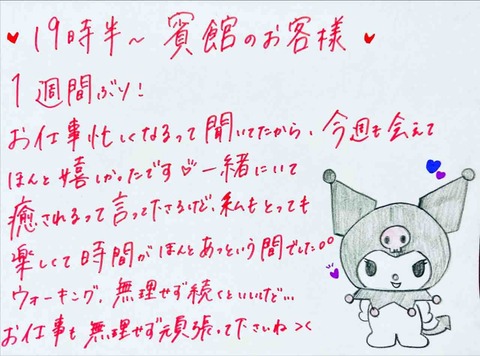 ♥ 19時半〜 賓館のお客様 ♥
1週間ぶり!
お仕事忙しくなるって聞いてたから、今週も会えて
ほんと嬉しかったです♡一緒にいて
癒されるって言って下さるけど、私もとっても
楽しくて時間がほんとあっという間でした。
ウォーキング、無理せず続くといいけど…
お仕事も無理せず頑張って下さいね><